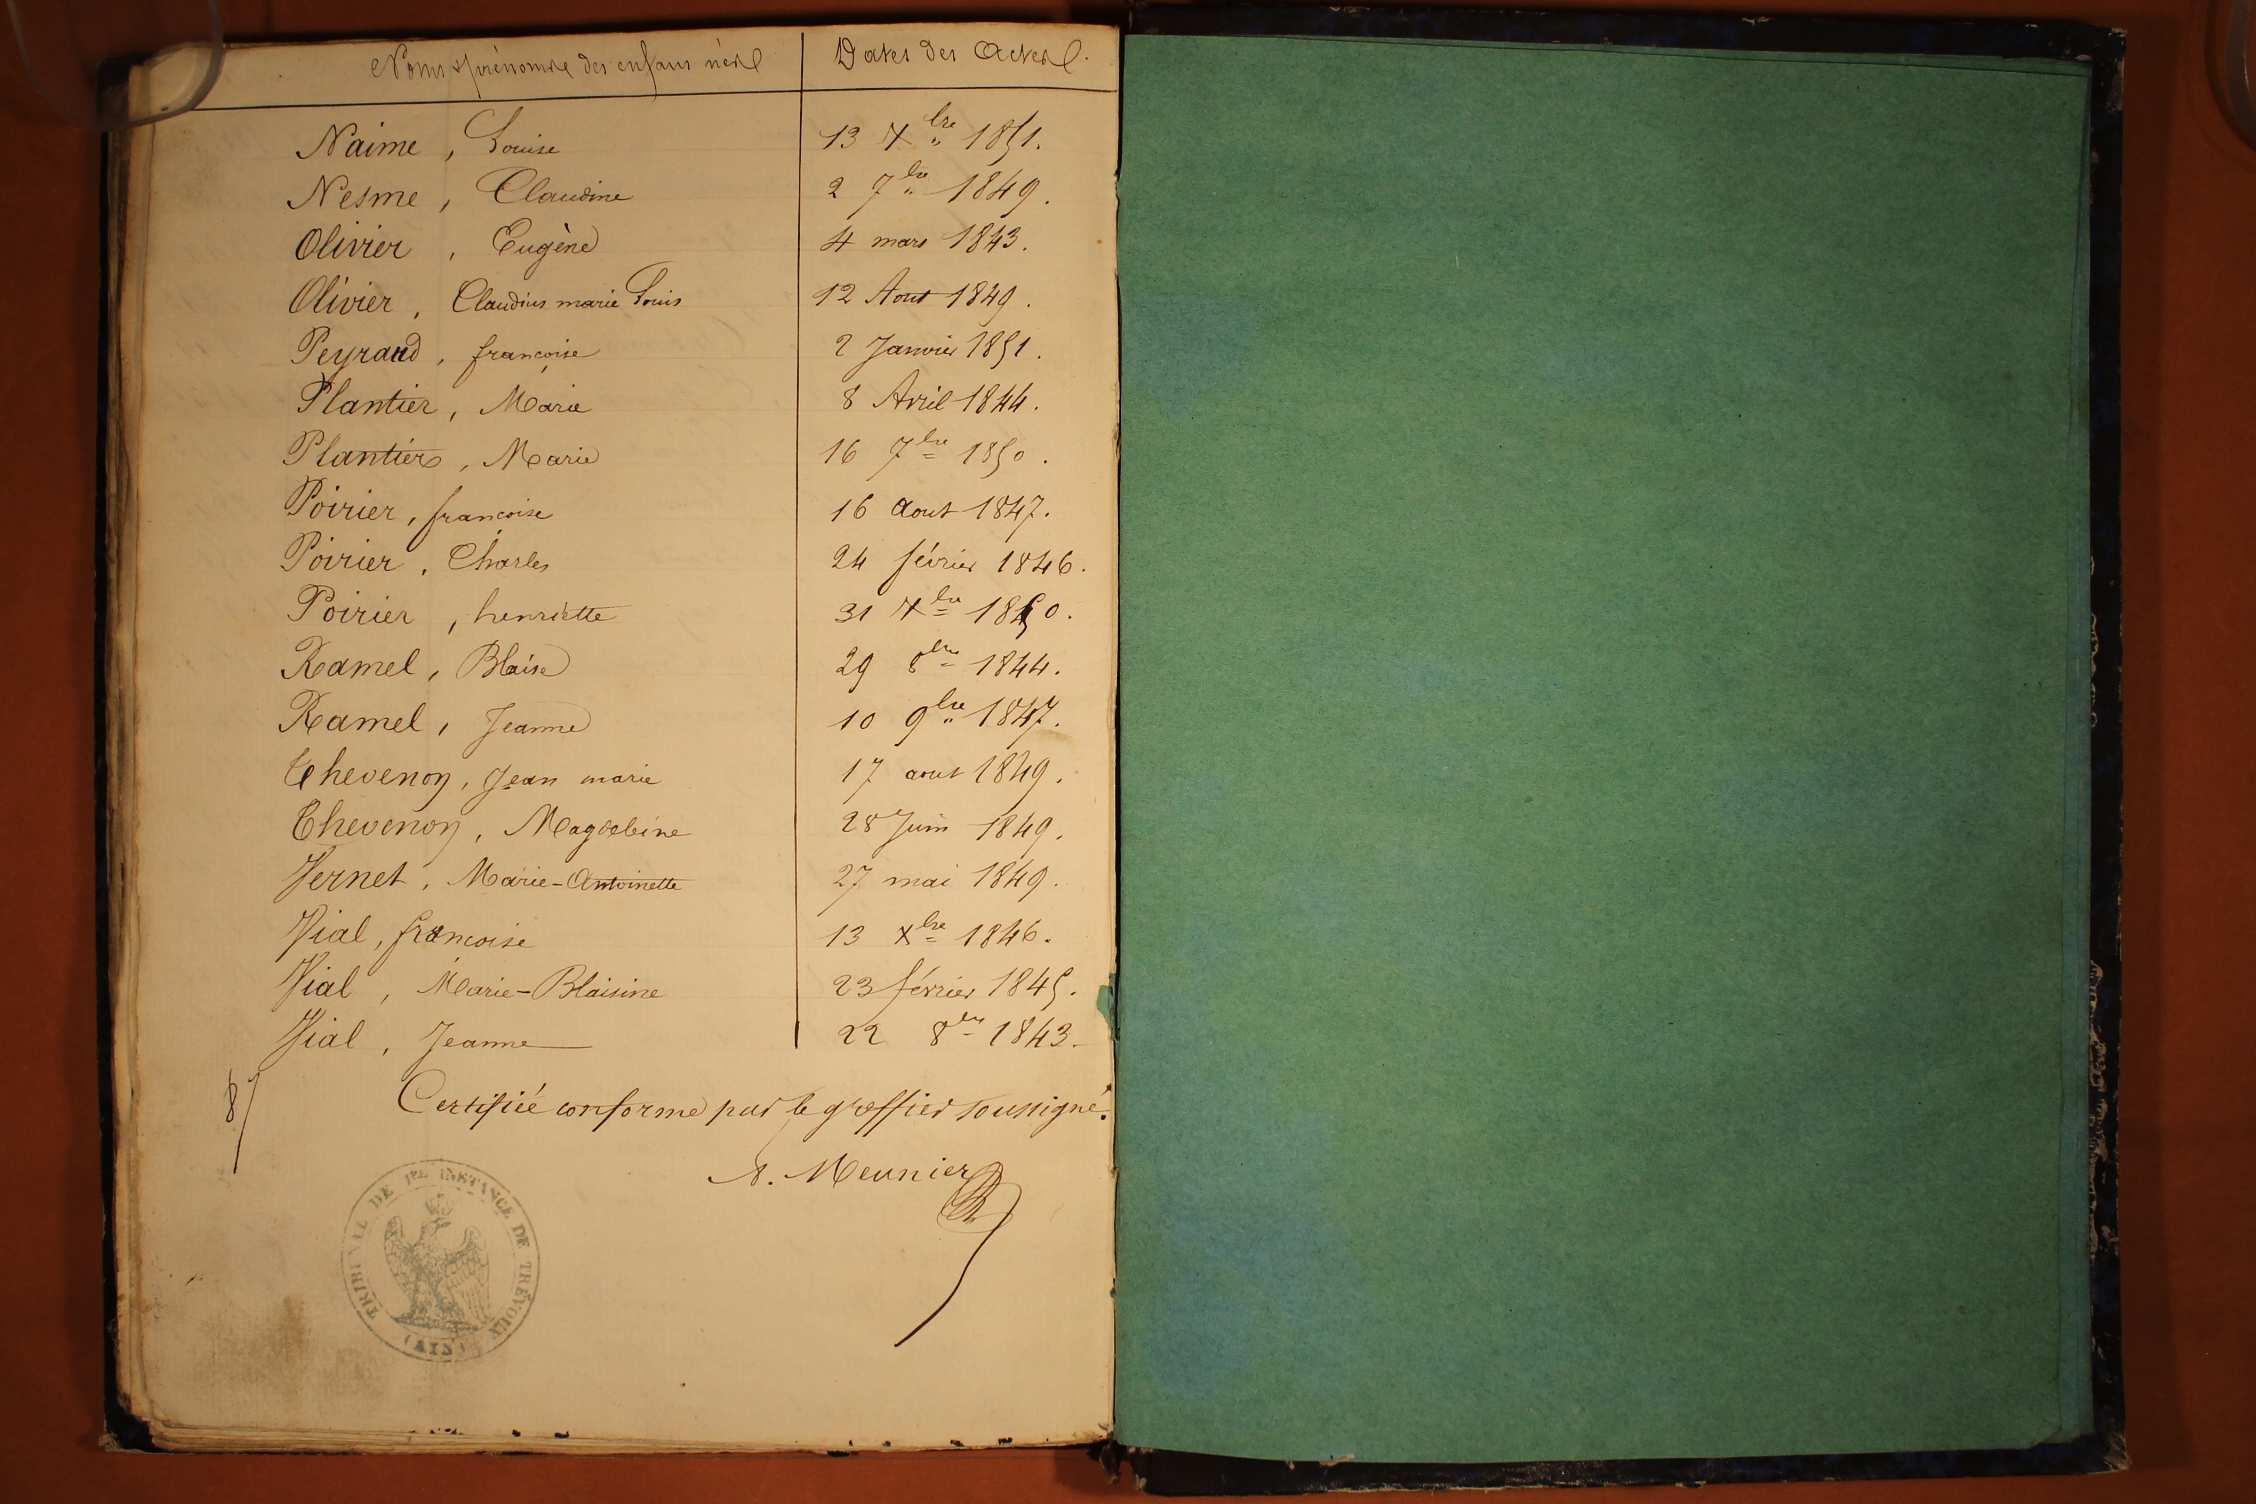 Noms & prénoms des enfans nés
Dates des Actes.
Naime, Louise 13 Xbre 1851.
Nesme, Claudine 2 7bre 1849.
Olivier, Eugène 4 mars 1843.
Olivier, Claudius marie Louis 12 Aout 1849.
Peyraud, françoise 2 Janvier 1851.
Plantier, Marie 8 Avril 1844.
Plantier, Marie 16 7bre 1850.
Poirier, françoise 16 aout 1847.
Poirier, Charles 24 février 1846.
Poirier, henriette 31 Xbre 1850.
Ramel, Blaise 29 8bre 1844.
Ramel, Jeanne 10 9bre 1847.
Thevenon, Jean marie 17 aout 1849.
Thevenon, Magdeleine 28 Juin 1849.
Vernet, Marie-Antoinette 27 mai 1849.
Vial, françoise 13 Xbre 1846.
Vial, Marie-Blaisine 23 février 1845.
Vial, Jeanne 22 8bre 1843.
Certifiée conforme par le greffier soussigné.
A. Meunier
TRIBUNAL DE 1RE INSTANCE DE TRÉVOUX
(AIN)